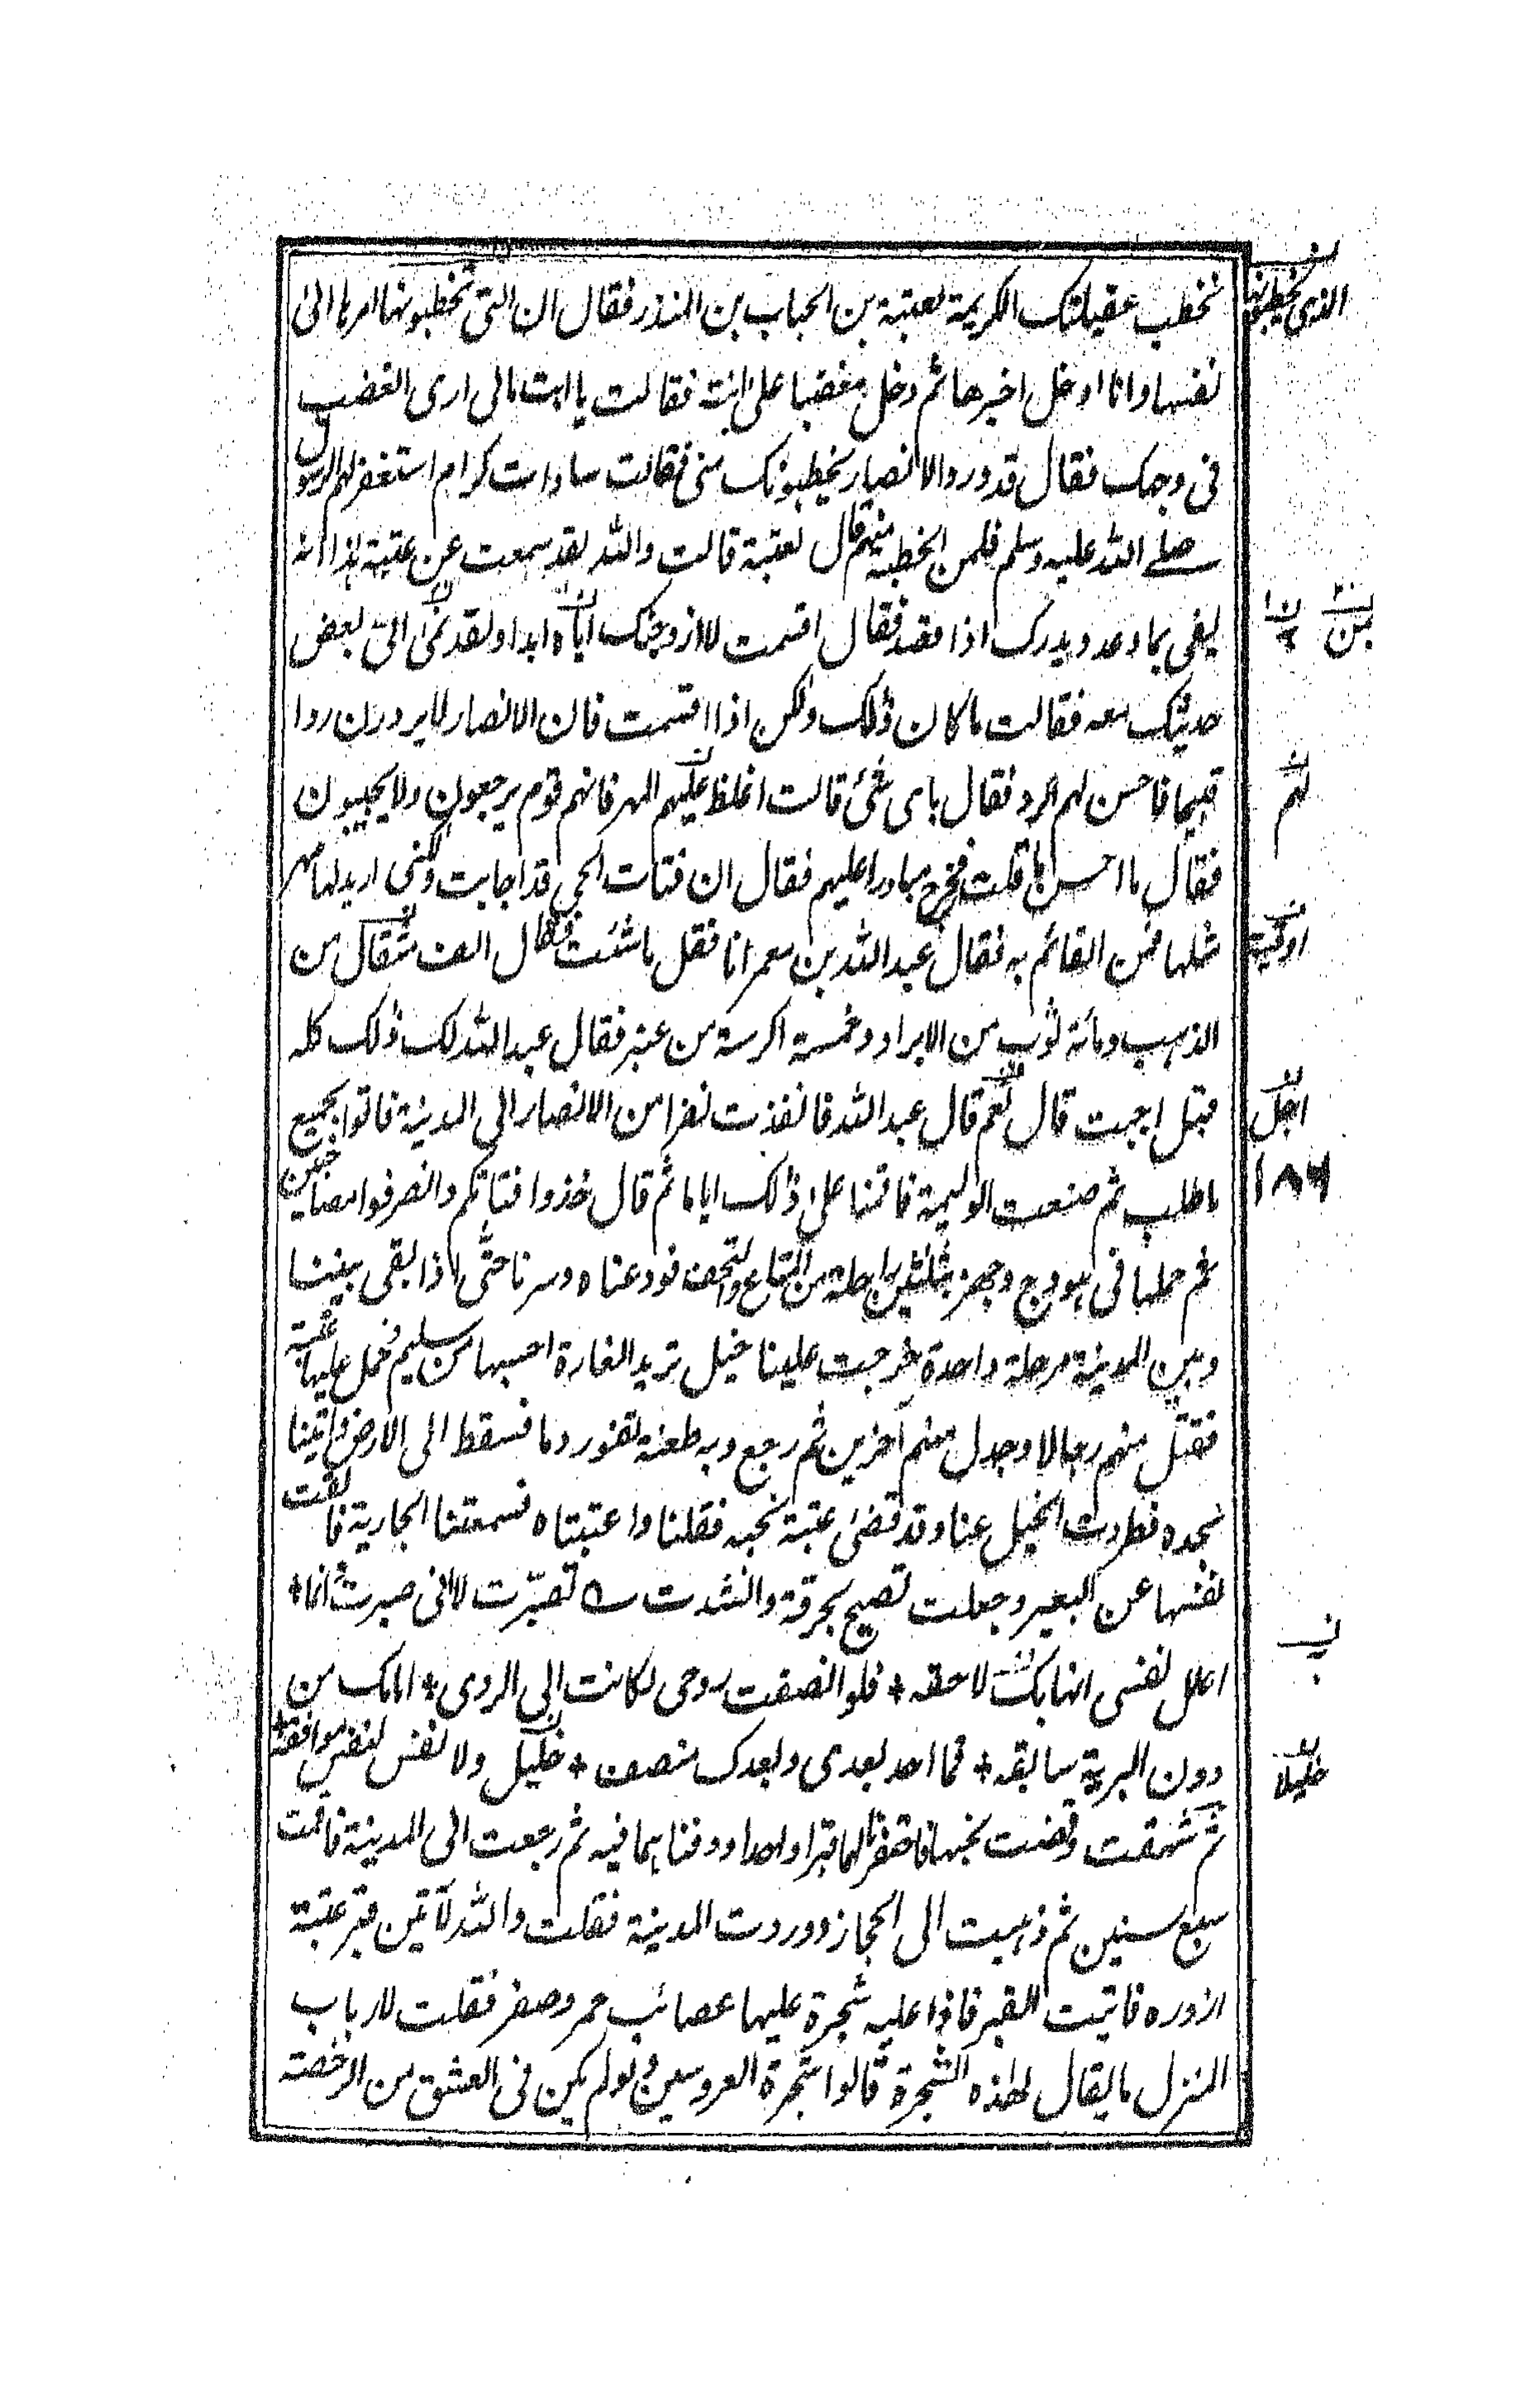 نخطب عقيلتك الكريمة لعتبة بن الحباب بن المنذر فقال ان التى تخطبونها امرها الى
نفسها وانا ادخل اخبرها ثم دخل مغضبا على ابنته فقالت يا ابت مالى ارى الغضب
فى وجهك فقال قد ورد الانصار يخطبونك منى فقالت سادات كرام استغفر لهم الرسول
صلے الله عليه وسلم فلمن الخطبة منهم قال لعتبة قالت والله لقد سمعت عن عتبة هذا انه
ليفى بما وعد ويدرك اذا قصد فقال اقسمت لا ازوجنك اياه ابدا ولقد نمى الىّ بعض
حديثك معه فقالت ما كان ذلك ولكن اذا اقسمت فان الانصار لا يردون ردا
قبيحا فاحسن لهم الرد فقال باى شئ قالت اغلظ عليهم المهر فانهم قوم يرجعون ولا يجيبون
فقال ما احسن ما قلت فخرج مبادرا عليهم فقال ان فتات الحى قد اجابت ولكنى اريد لها مهر
مثلها فمن القائم به فقال عبد الله بن معمر انا فقل ما شئت فقال الف مثقال من
الذهب ومائة ثوب من الابراد وخمسة اكرسة من عنبر فقال عبد الله لك ذلك كله
فهل اجبت قال نعم قال عبد الله فانفذت نفرا من الانصار الى المدينة فاتوا بجميع
ما طلب ثم صنعت الوليمة فاقمنا على ذلك اياما ثم قال خذوا فتاتكم وانصرفوا مصاحبين
ثم حملها فى هودج وجهز بثلثين راحلة من المتاع والتحف فودعناه وسرنا حتى اذا بقى بيننا
وبين المدينة مرحلة واحدة خرجت علينا خيل تريد الغارة احسبها من سليم فحمل عليها عتبة
فقتل منهم رجالا وجدل منهم آخرين ثم رجع وبه طعنة تفور دما فسقط الى الارض واتينا
نجده فطردت الخيل عنا وقد قضى عتبة نحبه فقلنا واعتبتاه فسمعتنا الجارية فالقت
نفسها عن البعير وجعلت تصيح بحرقة وانشدت ؎ تصبّرت لا انى صبرت وانما *
اعلل نفسى انها بك لاحقه * فلو انصفت روحى لكانت الى الردى * امامك من
دون البرية سابقه * فما احد بعدى وبعدك منصف * خليل ولا نفس لنفس موافقه *
ثم شهقت وقضت نحبها فاحتفرنا لهما قبرا واحدا ودفناهما فيه ثم رجعت الى المدينة فاقمت
سبع سنين ثم ذهبت الى الحجاز ووردت المدينة فقلت والله لآتين قبر عتبة
ازوره فاتيت القبر فاذا عليه شجرة عليها عصائب حمر وصفر فقلت لارباب
المنزل ما يقال لهذه الشجرة قالوا شجرة العروسين ولو لم يكن فى العشق من الرخصة
الذى يخطبها
بن
لهم
اوقية
اجل
۱۸۶
ب
خليلا